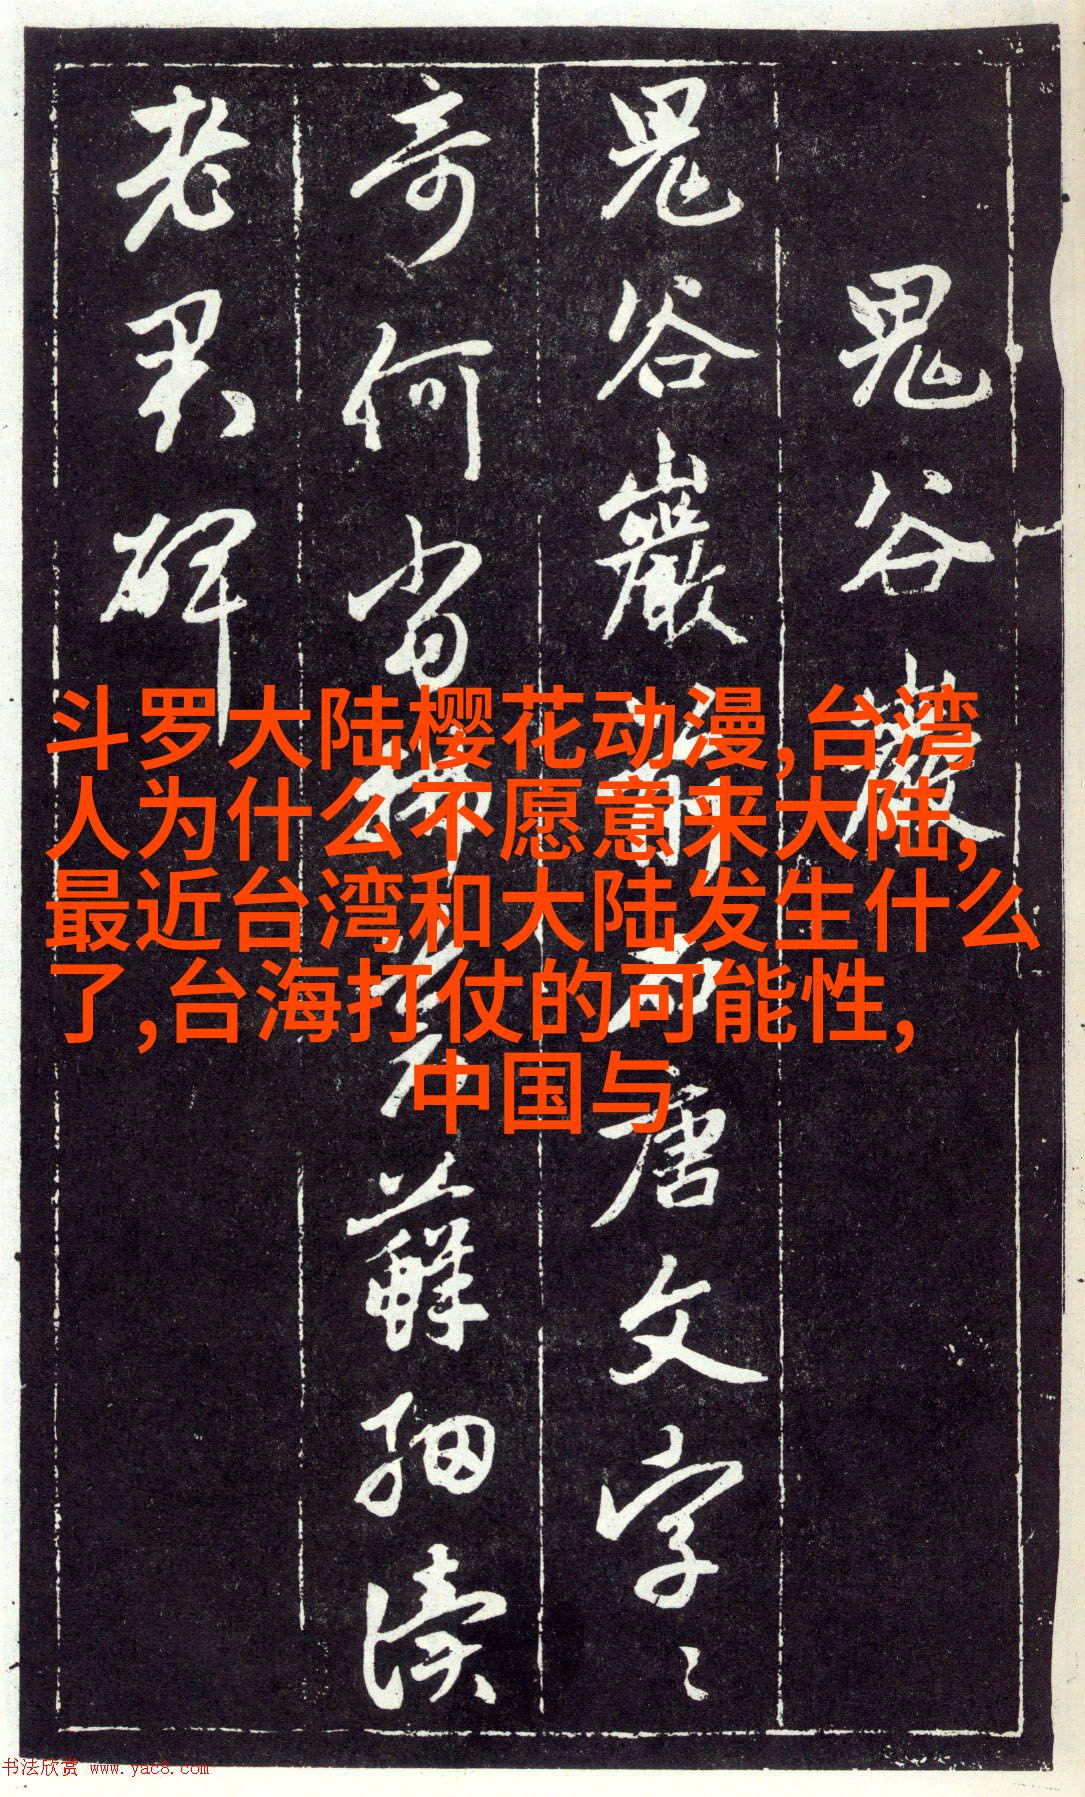 鬼谷巖
鬼谷巖唐文字〻
奇何當蘚細讀
老君碑
斗罗大陆樱花动漫,台湾
人为什么不愿意来大陆,
最近台湾和大陆发生什么
了,台海打仗的可能性,
中国与
书法欣赏 www.yac8.com